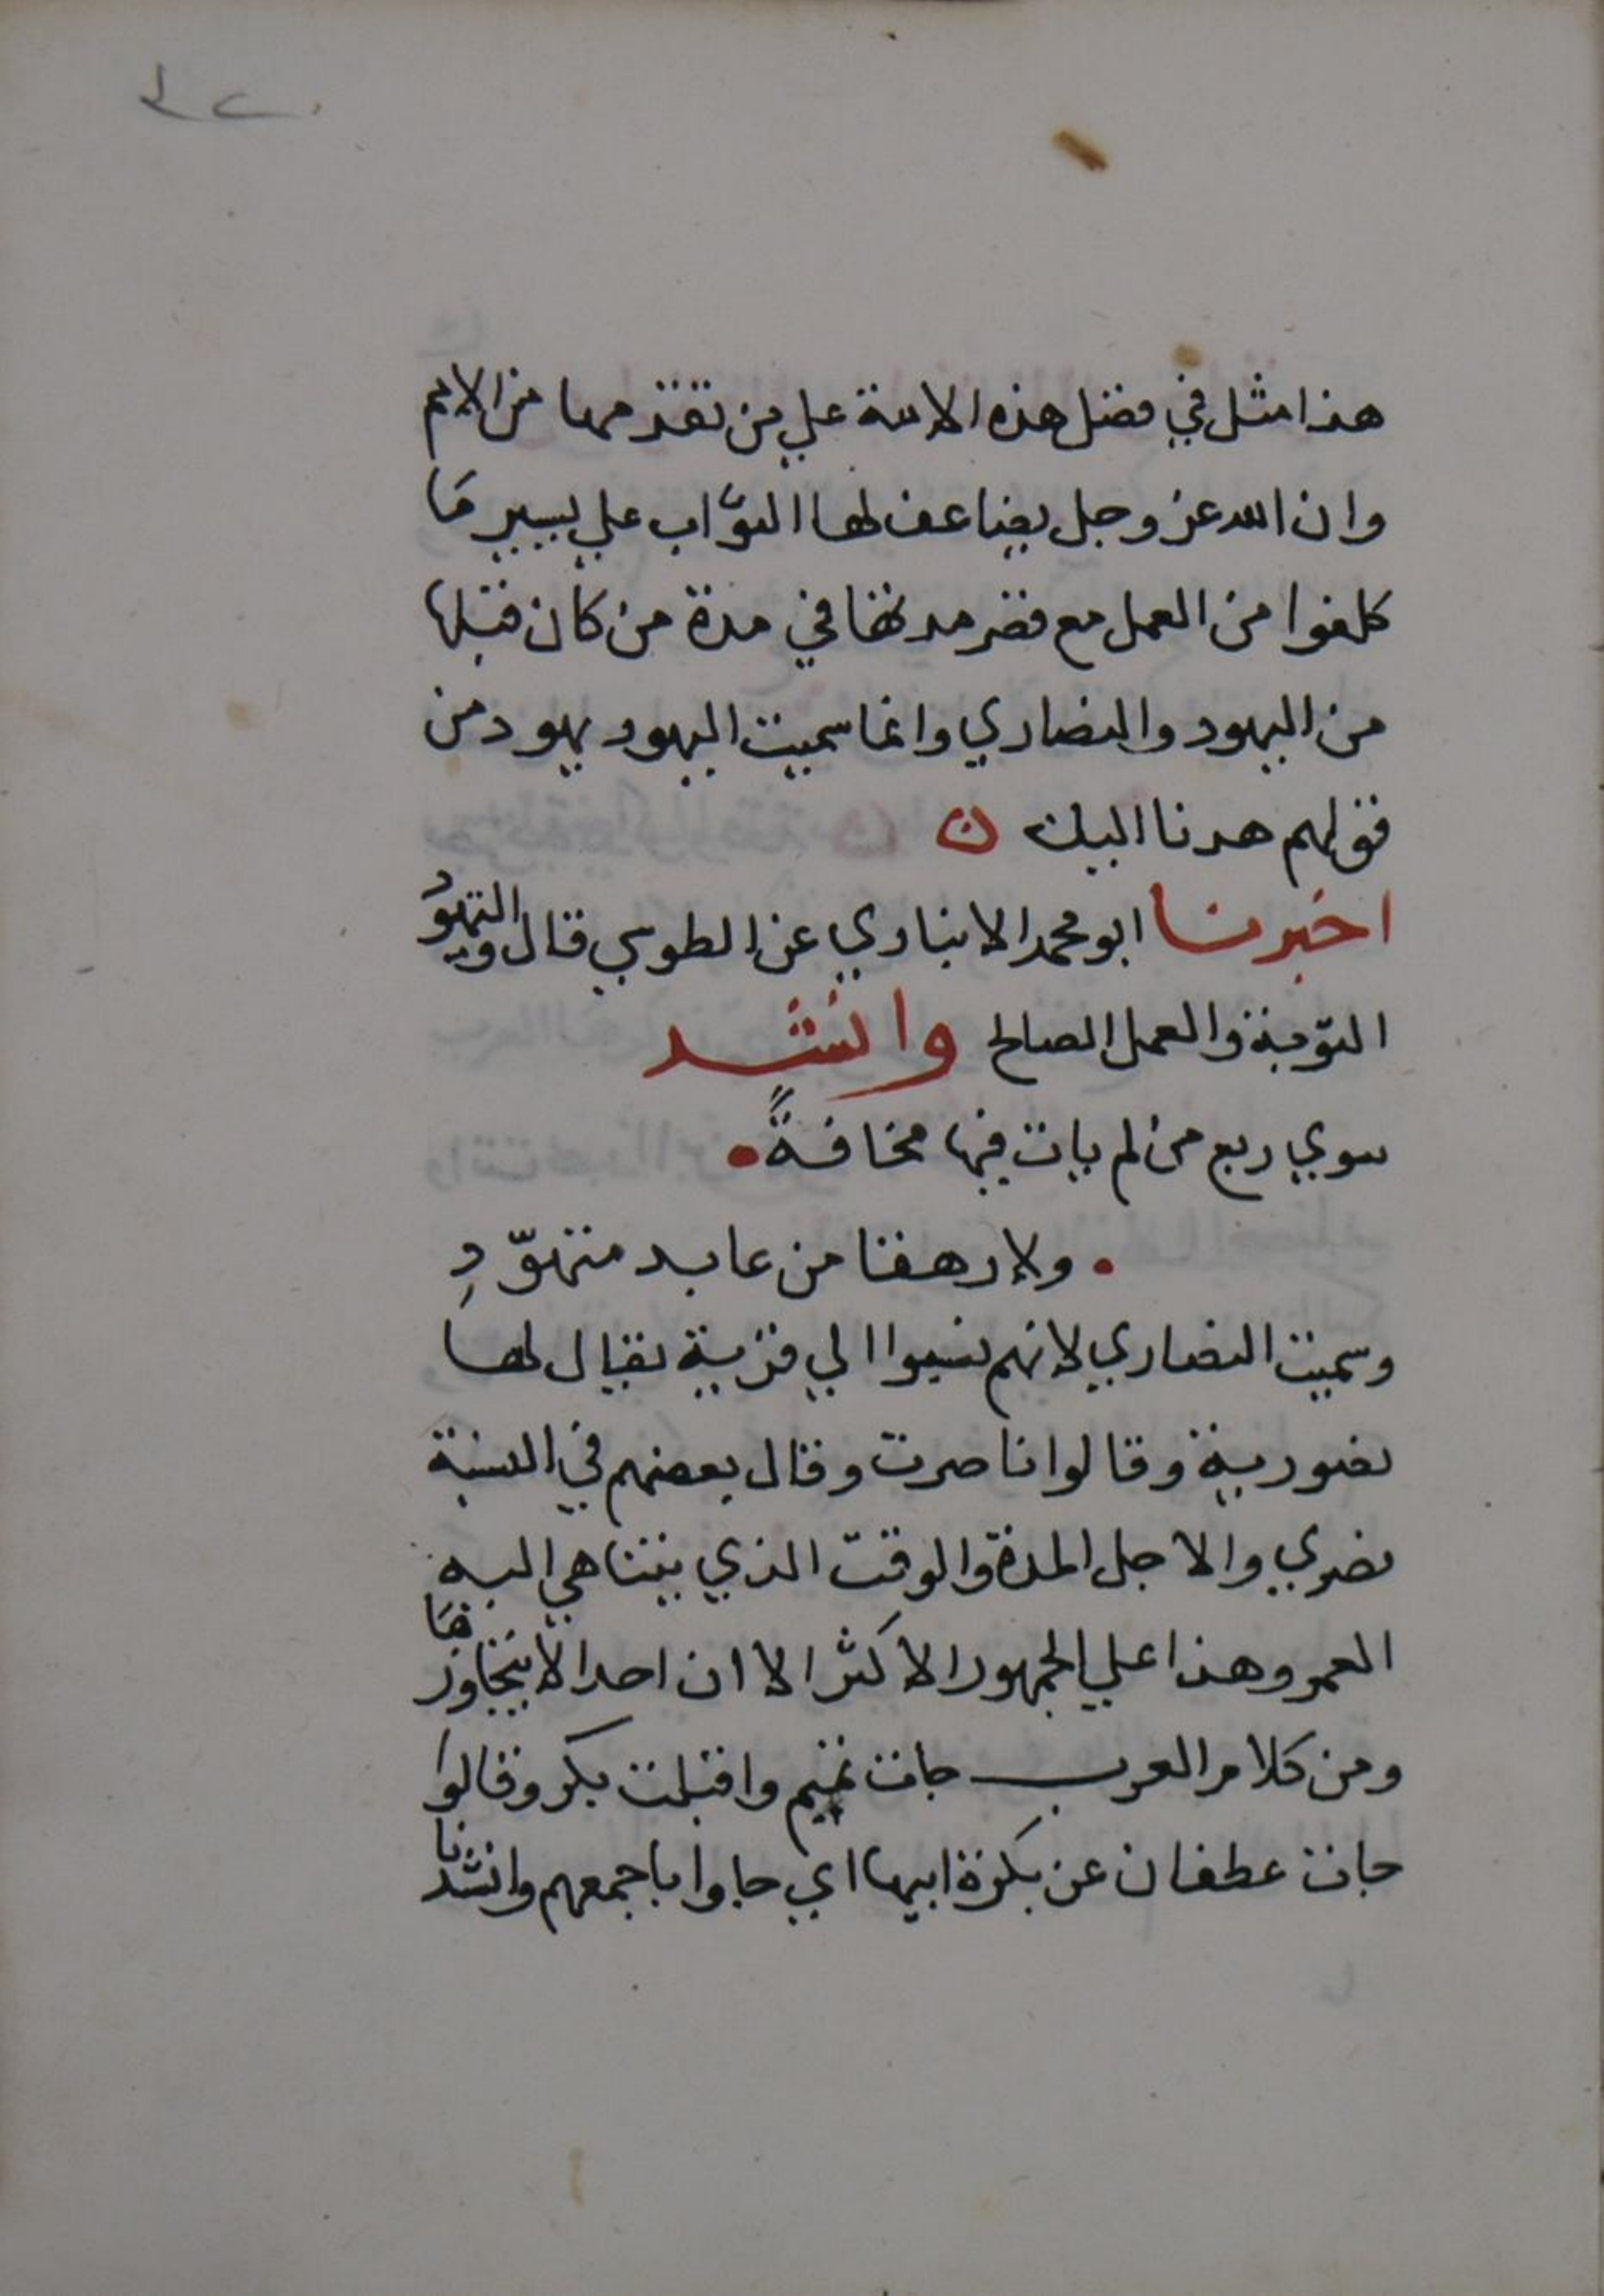 هذا مثل في فضل هذه الامة علي من تقدمها من الامم
وان الله عز وجل يضاعف لها الثواب علي يسير مَا
كلفوا من العمل مع قصر مدتها في مدة من كان قبلها
من اليهود والنصاري وانما سميت اليهود يهود من
قولهم هدنا اليك ن
اخبرنا ابو محمد الانباري عن الطوسي قال التهوُّد
التوبة والعمل الصالح وانشد
سوي ربع من لم يات فيها مخافةً
ولا رهفا من عابد متهوّدِ
وسميت النصاري لانهم نسبوا الي قرية يقال لها
نصورية وقالوا ناصرت وقال بعضهم في النسبة
نصري والاجل المدة والوقت الذي يتناهي اليه
العمر وهذا علي الجمهور الاكثر الا ان احدا لا يتجاوزها
ومن كلام العرب جات تميم واقبلت بكر وقالوا
جات عطفان عن بكرة ابيها اي جاوا باجمعهم وانشدنا